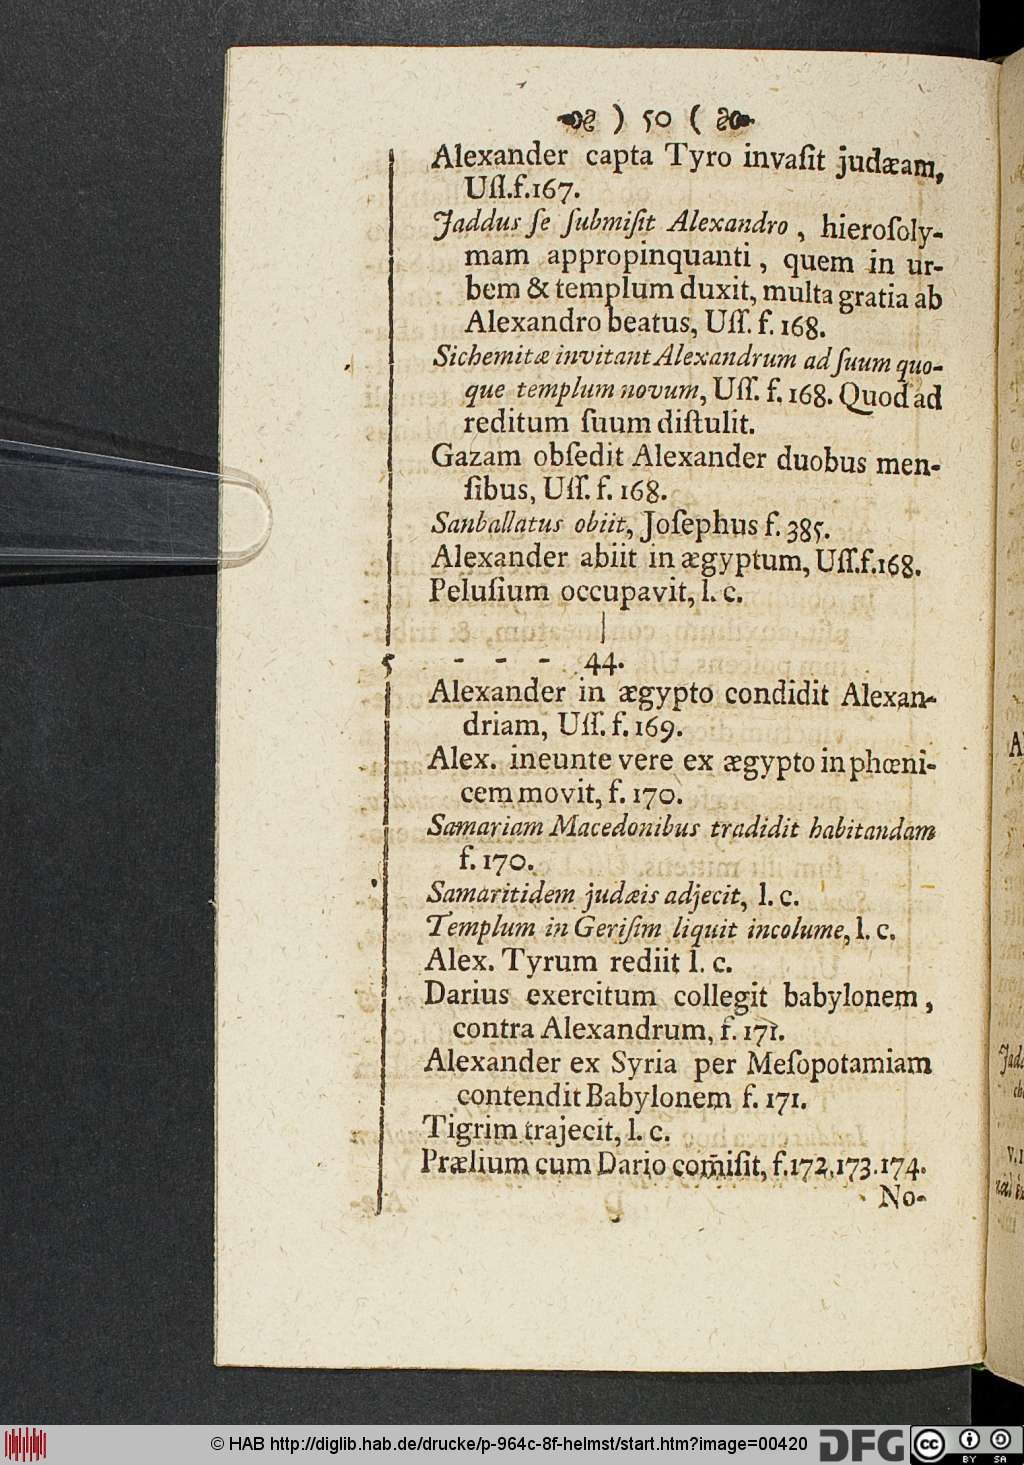 ) 50 (
Alexander capta Tyro invaſit judæam,
Uſſ.f.167.
Jaddus ſe ſubmiſit Alexandro, hieroſoly-
mam appropinquanti, quem in ur-
bem & templum duxit, multa gratia ab
Alexandro beatus, Uſſ. f. 168.
Sichemitæ invitant Alexandrum ad ſuum quo-
que templum novum, Uſſ. f. 168. Quod ad
reditum ſuum diſtulit.
Gazam obſedit Alexander duobus men-
ſibus, Uſſ. f. 168.
Sanballatus obiit, Joſephus f. 385.
Alexander abiit in ægyptum, Uſſ.f.168.
Peluſium occupavit, l. c.
5 - - - 44.
Alexander in ægypto condidit Alexan-
driam, Uſſ. f. 169.
Alex. ineunte vere ex ægypto in phœni-
cem movit, f. 170.
Samariam Macedonibus tradidit habitandam
f. 170.
Samaritidem judæis adjecit, l. c.
Templum in Geriſim liquit incolume, l. c.
Alex. Tyrum rediit l. c.
Darius exercitum collegit babylonem,
contra Alexandrum, f. 171.
Alexander ex Syria per Meſopotamiam
contendit Babylonem f. 171.
Tigrim trajecit, l. c.
Prælium cum Dario com̃iſit, f.172.173.174.
No-
© HAB http://diglib.hab.de/drucke/p-964c-8f-helmst/start.htm?image=00420
DFG
cc BY SA